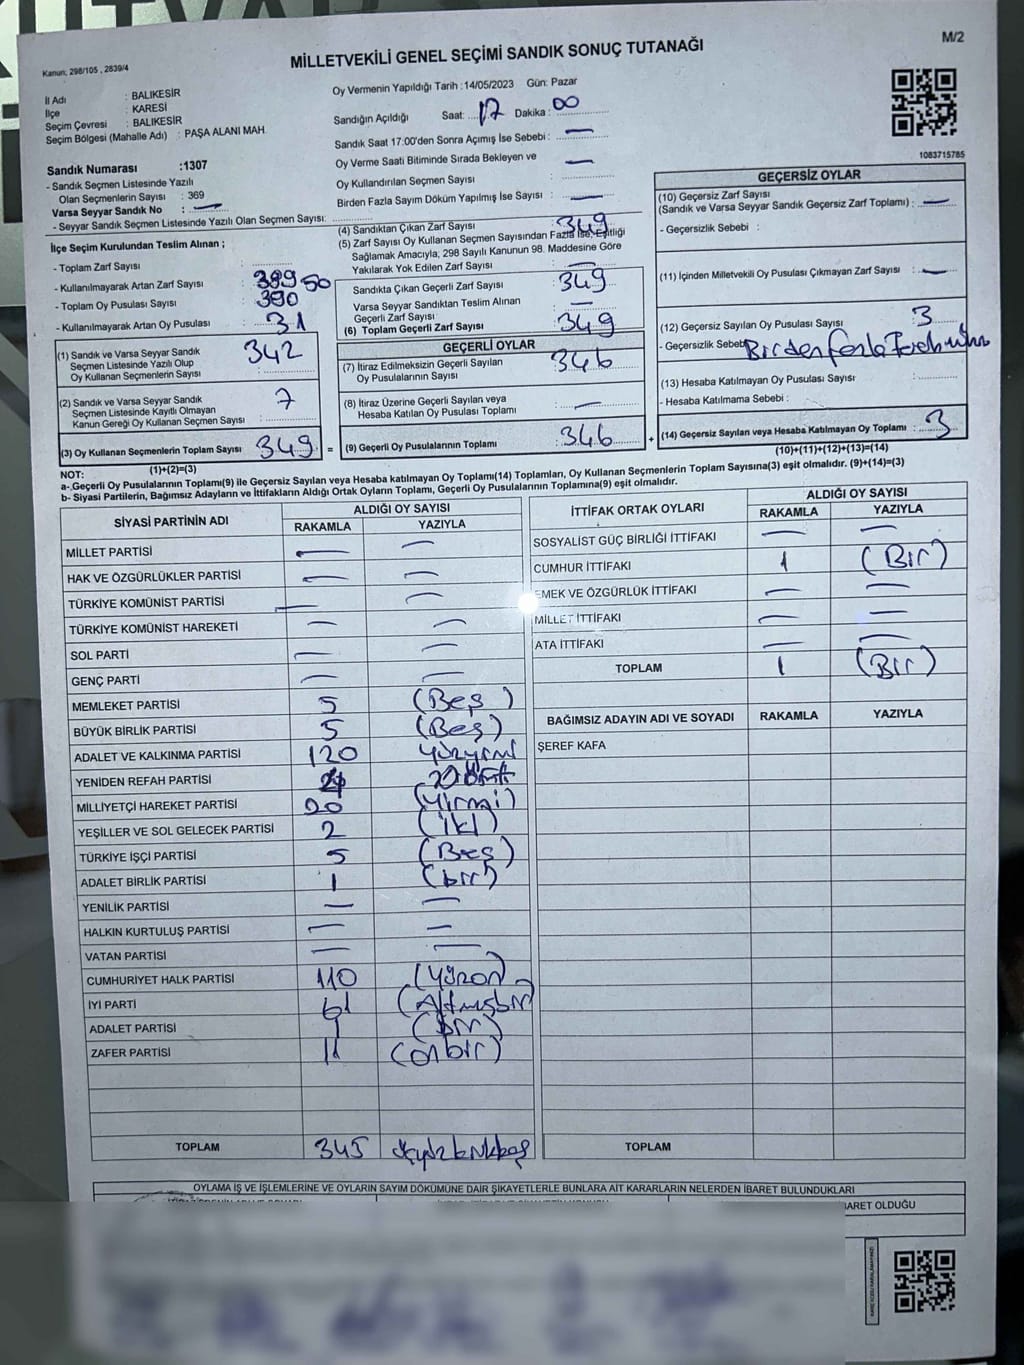 MİLLETVEKİLİ GENEL SEÇİMİ SANDIK SONUÇ TUTANAĞI
M/2
Kanun; 298/105 , 2839/4
İl Adı : BALIKESİR
İlçe : KARESİ
Seçim Çevresi : BALIKESİR
Seçim Bölgesi (Mahalle Adı) : PAŞA ALANI MAH.
Sandık Numarası :1307
- Sandık Seçmen Listesinde Yazılı
Olan Seçmenlerin Sayısı : 369
Varsa Seyyar Sandık No : —
- Seyyar Sandık Seçmen Listesinde Yazılı Olan Seçmen Sayısı:
Oy Vermenin Yapıldığı Tarih :14/05/2023 Gün: Pazar
Sandığın Açıldığı Saat: 17 Dakika: 00
Sandık Saat 17:00'den Sonra Açımış İse Sebebi : —
Oy Verme Saati Bitiminde Sırada Bekleyen ve —
Oy Kullandırılan Seçmen Sayısı :
Birden Fazla Sayım Döküm Yapılmış İse Sayısı : —
1083715785
İlçe Seçim Kurulundan Teslim Alınan ;
- Toplam Zarf Sayısı :
- Kullanılmayarak Artan Zarf Sayısı : 50
- Toplam Oy Pusulası Sayısı : 380
- Kullanılmayarak Artan Oy Pusulası : 31
(1) Sandık ve Varsa Seyyar Sandık
Seçmen Listesinde Yazılı Olup
Oy Kullanan Seçmenlerin Sayısı : 342
(2) Sandık ve Varsa Seyyar Sandık
Seçmen Listesinde Kayıtlı Olmayan
Kanun Gereği Oy Kullanan Seçmen Sayısı : 7
(3) Oy Kullanan Seçmenlerin Toplam Sayısı : 349
(1)+(2)=(3)
(4) Sandıktan Çıkan Zarf Sayısı : 349
(5) Zarf Sayısı Oy Kullanan Seçmen Sayısından Fazla İse, Eşitliği
Sağlamak Amacıyla, 298 Sayılı Kanunun 98. Maddesine Göre
Yakılarak Yok Edilen Zarf Sayısı : —
Sandıkta Çıkan Geçerli Zarf Sayısı : 349
Varsa Seyyar Sandıktan Teslim Alınan
Geçerli Zarf Sayısı : —
(6) Toplam Geçerli Zarf Sayısı : 349
GEÇERLİ OYLAR
(7) İtiraz Edilmeksizin Geçerli Sayılan
Oy Pusulalarının Sayısı : 346
(8) İtiraz Üzerine Geçerli Sayılan veya
Hesaba Katılan Oy Pusulası Toplamı : —
= (9) Geçerli Oy Pusulalarının Toplamı : 346
GEÇERSİZ OYLAR
(10) Geçersiz Zarf Sayısı
(Sandık ve Varsa Seyyar Sandık Geçersiz Zarf Toplamı) : —
- Geçersizlik Sebebi :
(11) İçinden Milletvekili Oy Pusulası Çıkmayan Zarf Sayısı : —
(12) Geçersiz Sayılan Oy Pusulası Sayısı : 3
- Geçersizlik Sebebi Birden fazla
(13) Hesaba Katılmayan Oy Pusulası Sayısı :
- Hesaba Katılmama Sebebi :
+ (14) Geçersiz Sayılan veya Hesaba Katılmayan Oy Toplamı : 3
(10)+(11)+(12)+(13)=(14)
NOT:
a- Geçerli Oy Pusulalarının Toplamı(9) ile Geçersiz Sayılan veya Hesaba katılmayan Oy Toplamı(14) Toplamları, Oy Kullanan Seçmenlerin Toplam Sayısına(3) eşit olmalıdır. (9)+(14)=(3)
b- Siyasi Partilerin, Bağımsız Adayların ve İttifakların Aldığı Ortak Oyların Toplamı, Geçerli Oy Pusulalarının Toplamına(9) eşit olmalıdır.
SİYASİ PARTİNİN ADI ALDIĞI OY SAYISI
RAKAMLA YAZIYLA
MİLLET PARTİSİ — —
HAK VE ÖZGÜRLÜKLER PARTİSİ — —
TÜRKİYE KOMÜNİST PARTİSİ — —
TÜRKİYE KOMÜNİST HAREKETİ — —
SOL PARTİ — —
GENÇ PARTİ — —
MEMLEKET PARTİSİ 5 (Beş)
BÜYÜK BİRLİK PARTİSİ 5 (Beş)
ADALET VE KALKINMA PARTİSİ 120 yüzyirmi
YENİDEN REFAH PARTİSİ
MİLLİYETÇİ HAREKET PARTİSİ 20 (Yirmi)
YEŞİLLER VE SOL GELECEK PARTİSİ 2 (iki)
TÜRKİYE İŞÇİ PARTİSİ 5 (Beş)
ADALET BİRLİK PARTİSİ 1 (bir)
YENİLİK PARTİSİ — —
HALKIN KURTULUŞ PARTİSİ — —
VATAN PARTİSİ — —
CUMHURİYET HALK PARTİSİ 110 (Yüzon)
İYİ PARTİ 61 (Altmışbir)
ADALET PARTİSİ 1 (bir)
ZAFER PARTİSİ 11 (onbir)
TOPLAM 345 üçyüzkırkbeş
İTTİFAK ORTAK OYLARI ALDIĞI OY SAYISI
RAKAMLA YAZIYLA
SOSYALİST GÜÇ BİRLİĞİ İTTİFAKI — —
CUMHUR İTTİFAKI 1 (Bir)
EMEK VE ÖZGÜRLÜK İTTİFAKI — —
MİLLET İTTİFAKI — —
ATA İTTİFAKI — —
TOPLAM 1 (Bir)
BAĞIMSIZ ADAYIN ADI VE SOYADI RAKAMLA YAZIYLA
ŞEREF KAFA
TOPLAM
OYLAMA İŞ VE İŞLEMLERİNE VE OYLARIN SAYIM DÖKÜMÜNE DAİR ŞİKAYETLERLE BUNLARA AİT KARARLARIN NELERDEN İBARET BULUNDUKLARI
BARET OLDUĞU